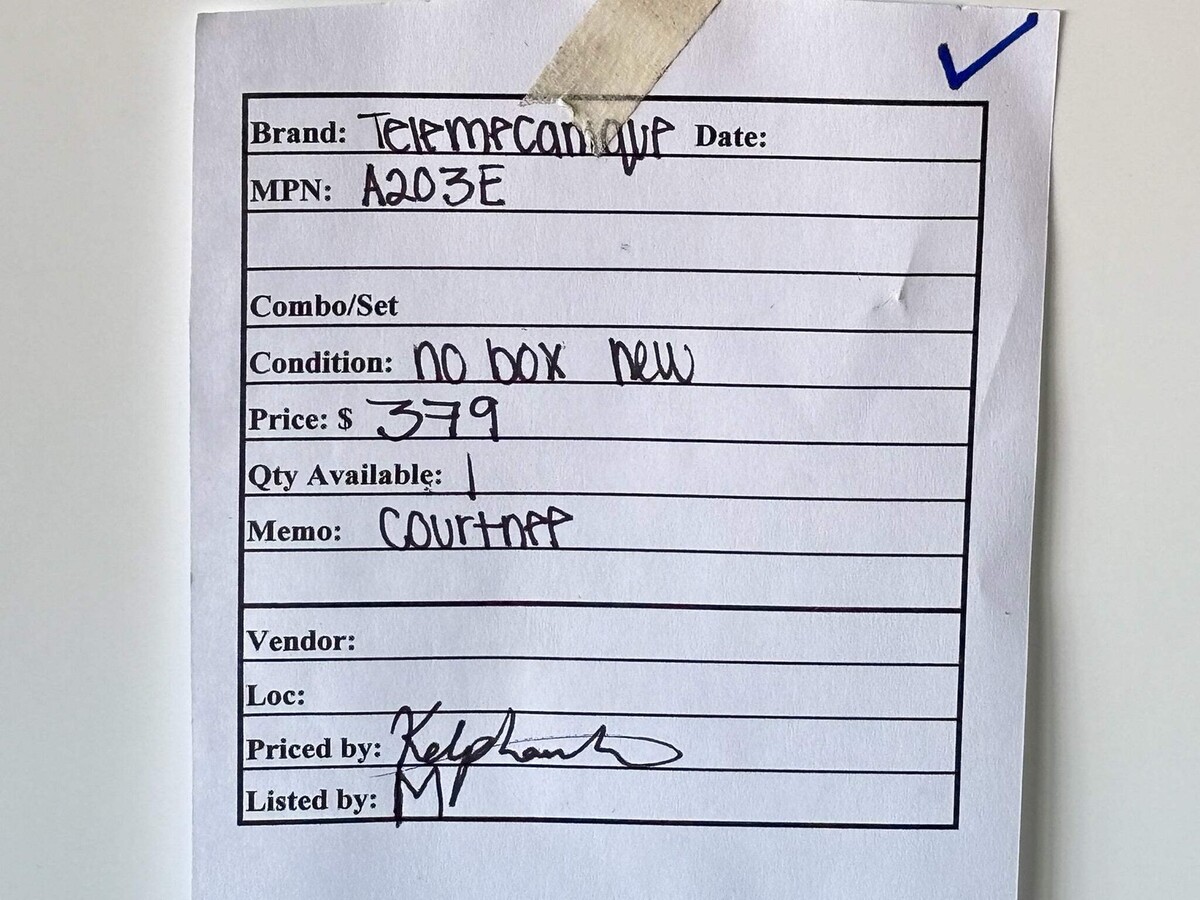 Brand: Telemecanique Date:
MPN: A203E
Combo/Set
Condition: no box new
Price: $ 379
Qty Available: 1
Memo: Courtnee
Vendor:
Loc:
Priced by:
Listed by: M